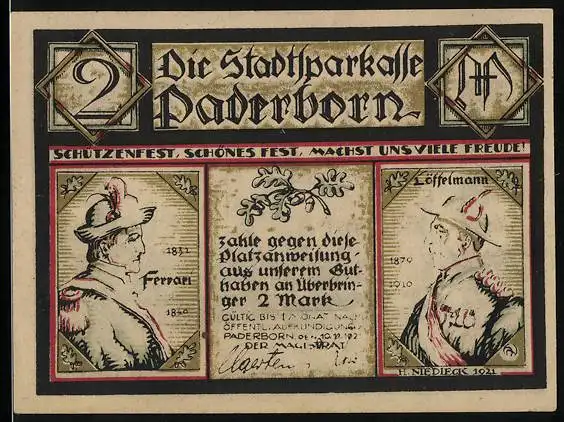 2
Die Stadtsparkasse
Paderborn
M
SCHÜTZENFEST, SCHÖNES FEST, MACHST UNS VIELE FREUDE!
1831
Ferrari
1840
zahle gegen diese
Platzanweisung
aus unserem Gut-
haben an Überbrin-
ger 2 Mark
GÜLTIG BIS 1 MONAT NACH
ÖFFENTL. AUFKÜNDIGUNG
PADERBORN,
DER MAGISTRAT
Löffelmann
1879
1910
H. NIEDIECK 1921